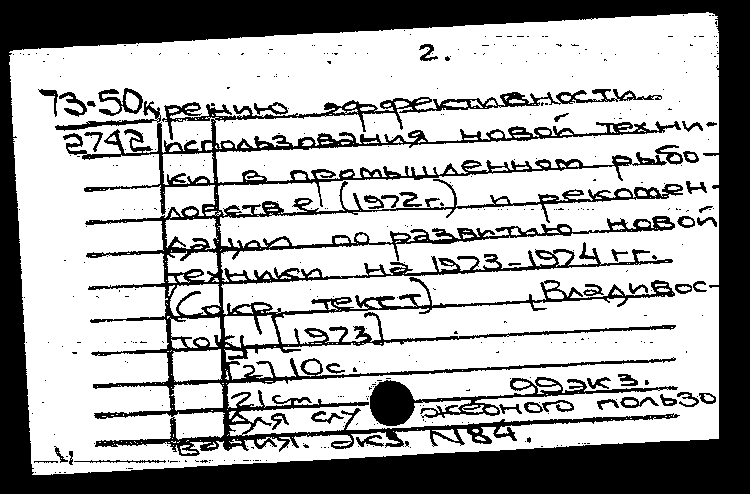 2.
73-50к рению эффективности
2742 использования новой техни-
ки в промышленном рыбо-
ловстве (1972г.) и рекомен-
дации по развитию новой
техники на 1973-1974 гг.
(Сокр. текст). [Владивос-
ток], [1973]
[2], 10с.
21см. 99экз.
Для служебного пользо
вания. экз. N84.